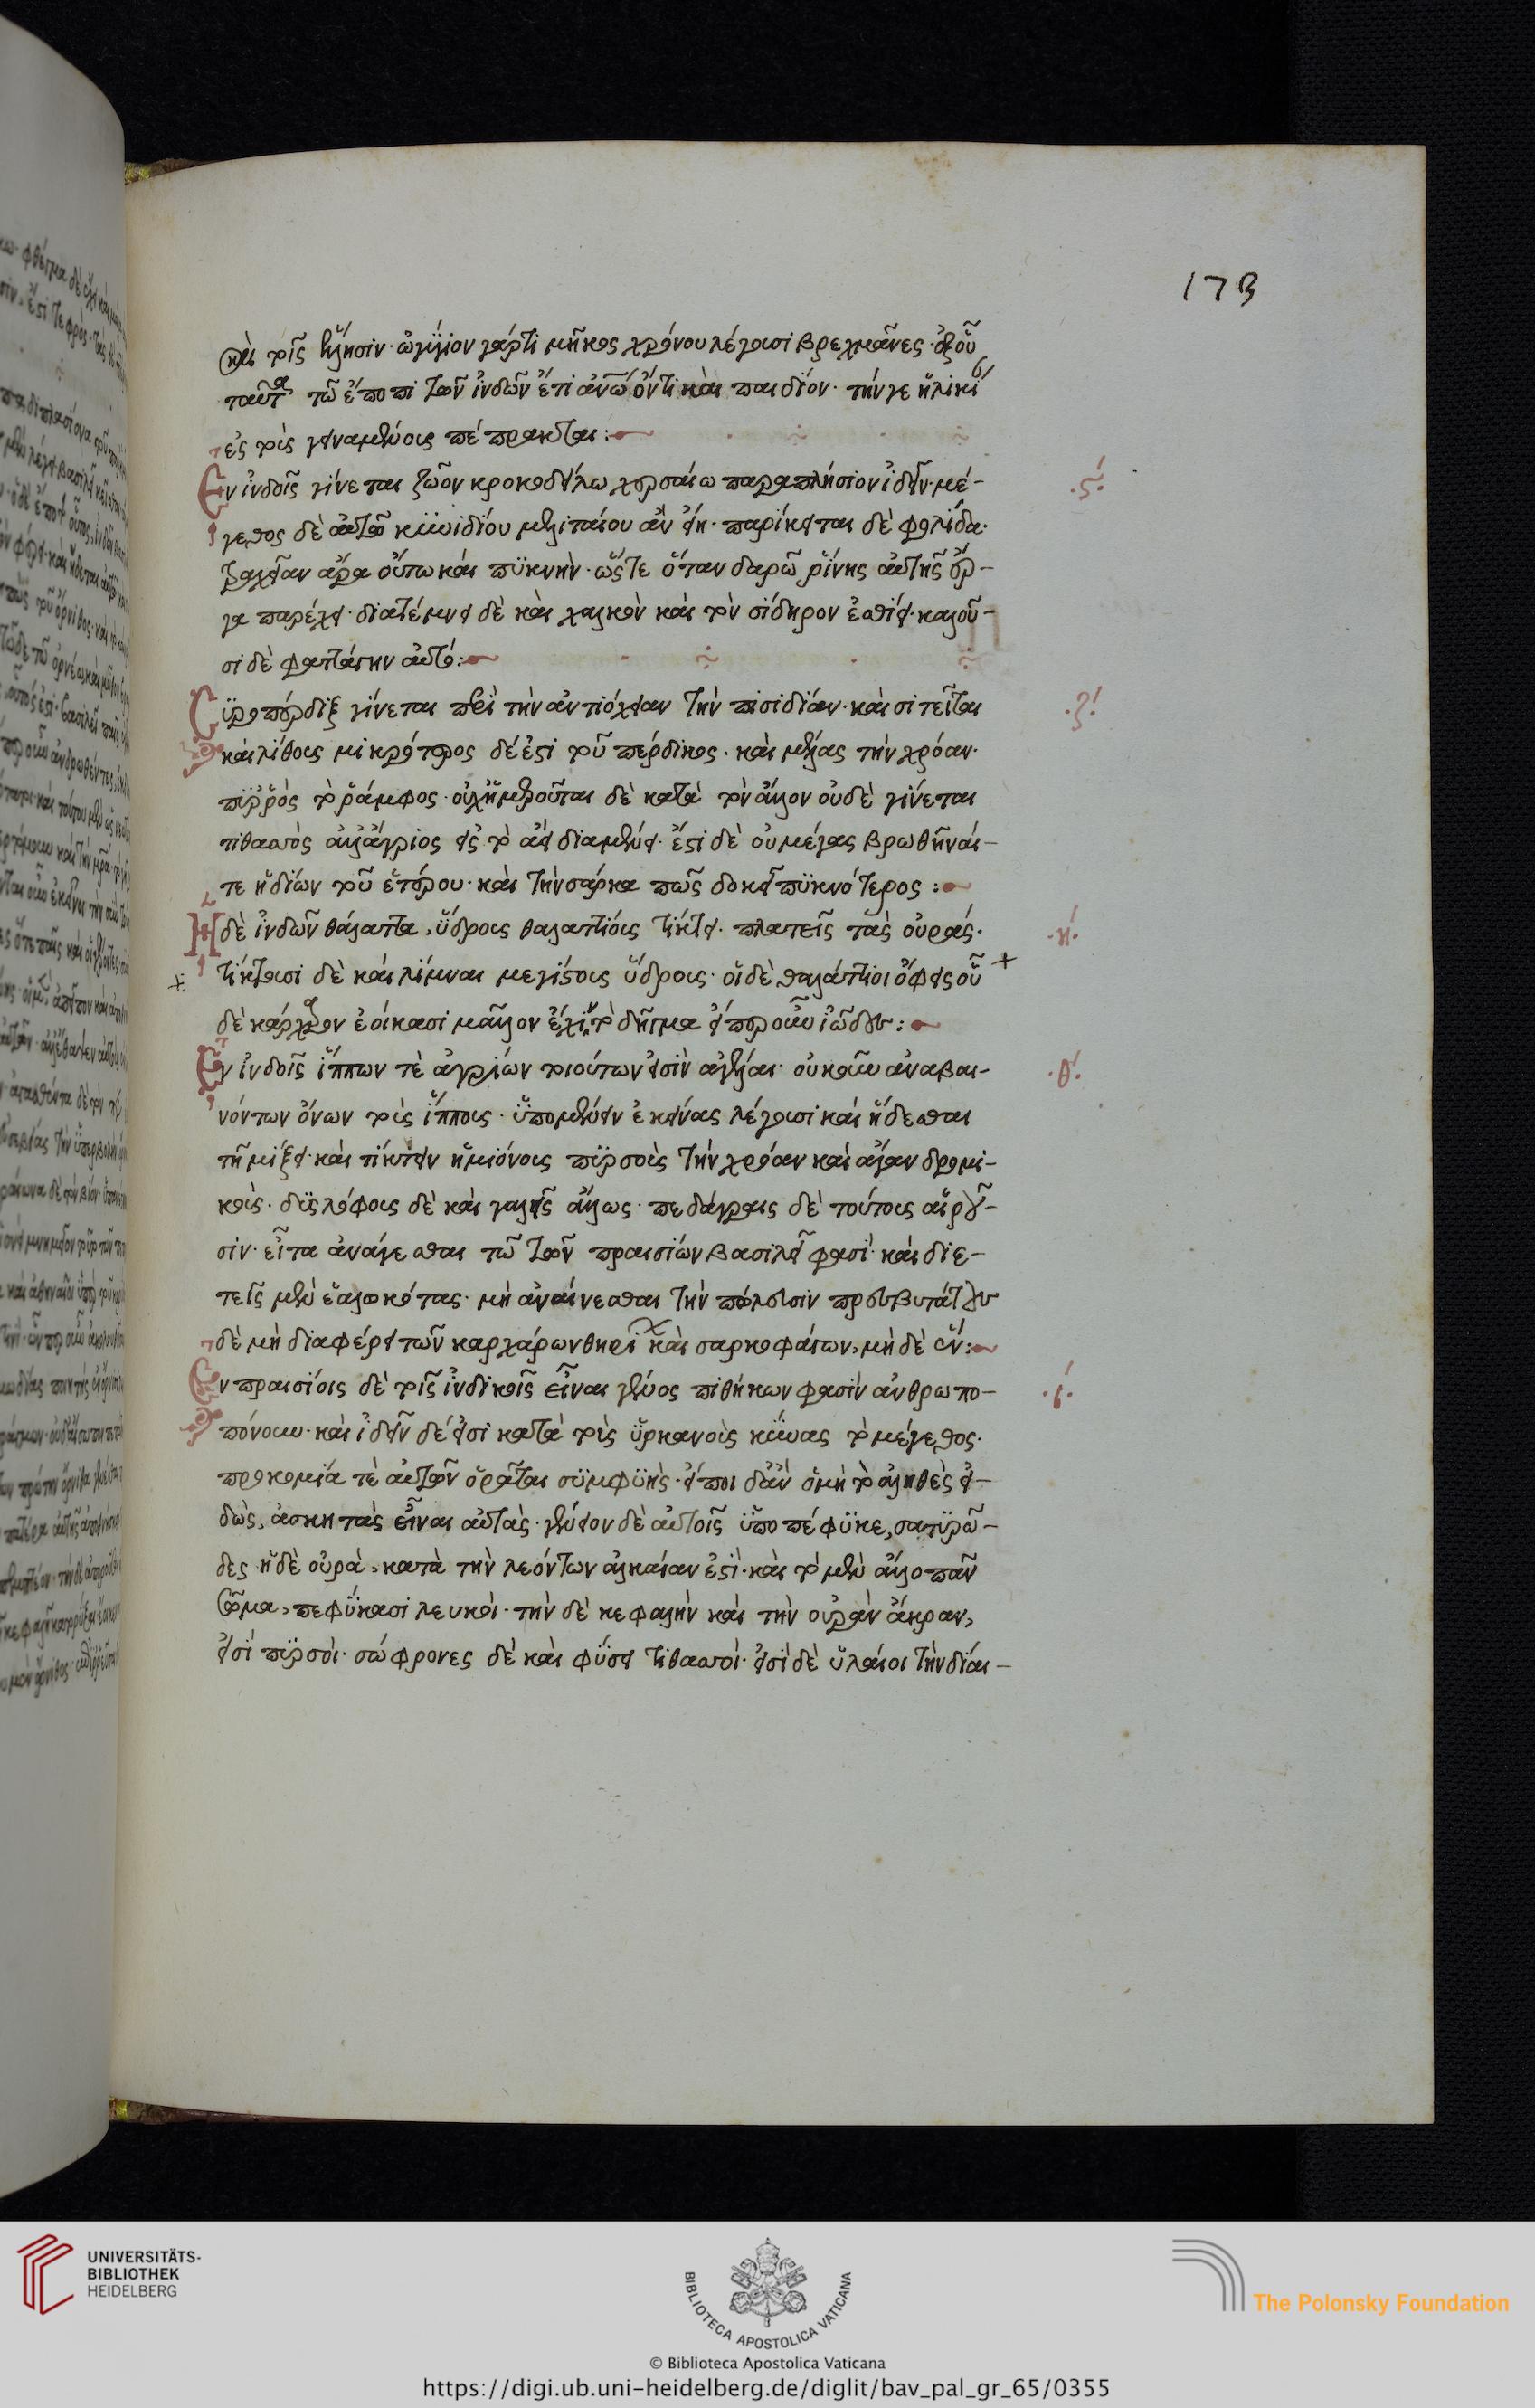 173
καὶ τοῖς ἕλλησιν· ὠγύγιον γάρ τι μῆκος χρόνου λέγουσι βραχμᾶνες· ἐξ οὗ
ταῦτα τῷ ἔποπι τῶν ἰνδῶν ἔτι ἀνῶ ὄντι καὶ παιδίον· τήν γε ἡλικί
ἐς τοὺς γειναμένους πέπρακται:
Ἐν ἰνδοῖς γίνεται ζῶον κροκοδείλω χερσαίω παραπλήσιον ἰδεῖν· μέ-
·ϛ·
γεθος δὲ αὐτῶ κυνιδίου μελιταίου ἂν εἴη· περίκειται δὲ φολίδα·
τραχεῖαν ἄρα οὕτω καὶ πυκνὴν· ὥστε ὅταν δαρῶ ῥίνης αὐτῆς ἔρ-
γα παρέχει· διατέμνει δὲ καὶ χαλκὸν καὶ τὸν σίδηρον ἐσθίει· καλοῦ-
σι δὲ φαττάγην αὐτό:
Συροπέρδιξ γίνεται περὶ τὴν ἀντιόχειαν τὴν πισιδίαν· καὶ σιτεῖται
·ζ·
καὶ λίθους μικρότερος δέ ἐστι τοῦ πέρδικος· καὶ μέλας τὴν χρόαν·
πυρρὸς τὸ ῥάμφος· οὐχ ἡμεροῦται δὲ κατὰ τὸν ἄλλον οὐδὲ γίνεται
τιθασσὸς ἀλλ' ἄγριος εἰς τὸ ἀεὶ διαμένει· ἔστι δὲ οὐ μέγας βρωθῆναί-
τε ἡδίων τοῦ ἑτέρου· καὶ τὴν σάρκα πῶς δοκεῖ πυκνότερος:
Ἡ δὲ ἰνδῶν θάλαττα, ὕδρους θαλαττίους τίκτει· πλατεῖς τὰς οὐράς·
·η·
τίκτουσι δὲ καὶ λίμναι μεγίστους ὕδρους· οἱ δὲ θαλάττιοι ὄφεις οὗ
δὲ κάρχαρον ἐοίκασι μᾶλλον ἔχειν τὸ δῆγμα ἤπερ οὖν ἰῶδες:
Ἐν ἰνδοῖς ἵππων τὲ ἀγρίων τοιούτων εἰσὶν ἀγέλαι· οὐκοῦν ἀναβαι-
·θ·
νόντων ὄνων τοὺς ἵππους· ὑπομένειν ἐκείνας λέγουσι καὶ ἥδεσθαι
τῆ μίξει· καὶ τίκτειν ἡμιόνους πυρσοὺς τὴν χρόαν καὶ ἄγαν δρομι-
κούς· δυσλόφους δὲ καὶ γαλεῖς ἄλλως· πεδάγραις δὲ τούτους αἱροῦ-
σιν· εἶτα ἀνάγεσθαι τῶ τῶν πραισίων βασιλεῖ φασί· καὶ διε-
τεῖς μὲν ἑαλωκότας· μὴ ἀναίνεσθαι τὴν πώλευσιν πρεσβυτάτους
δὲ μὴ διαφέρει τῶν καρχάρων θηρίων καὶ σαρκοφάγων, μὴ δὲ ἕν:
Ἐν πραισίοις δὲ τοῖς ἰνδικοῖς εἶναι γένος πιθήκων φασὶν ἀνθρωπο-
·ι·
πόνουν· καὶ ἰδεῖν δέ εἰσι κατὰ τοὺς ὑρκανοὺς κύνας τὸ μέγεθος·
προκομία τὲ αὐτῶν ὁρᾶται συμφυής· εἴποι δ' ἂν ὁ μὴ τὸ ἀληθὲς εἰ-
δὼς, ἀσκητὰς εἶναι αὐτὰς· γένειον δὲ αὐτοῖς ὑποπέφυκε, σατυρῶ-
δες· ἡ δὲ οὐρὰ, κατὰ τὴν λεόντων ἀλκαίαν ἐστὶ· καὶ τὸ μὲν ἄλλο πᾶν
σῶμα, πεφύκασι λευκοί· τὴν δὲ κεφαλὴν καὶ τὴν οὐρὰν ἄκραν,
εἰσὶ πυρσοί· σώφρονες δὲ καὶ φύσει τιθασσοί· εἰσὶ δὲ ὑλαῖοι τὴν δίαι-
UNIVERSITÄTS-
BIBLIOTHEK
HEIDELBERG
BIBLIOTECA APOSTOLICA VATICANA
The Polonsky Foundation
© Biblioteca Apostolica Vaticana
https://digi.ub.uni-heidelberg.de/diglit/bav_pal_gr_65/0355